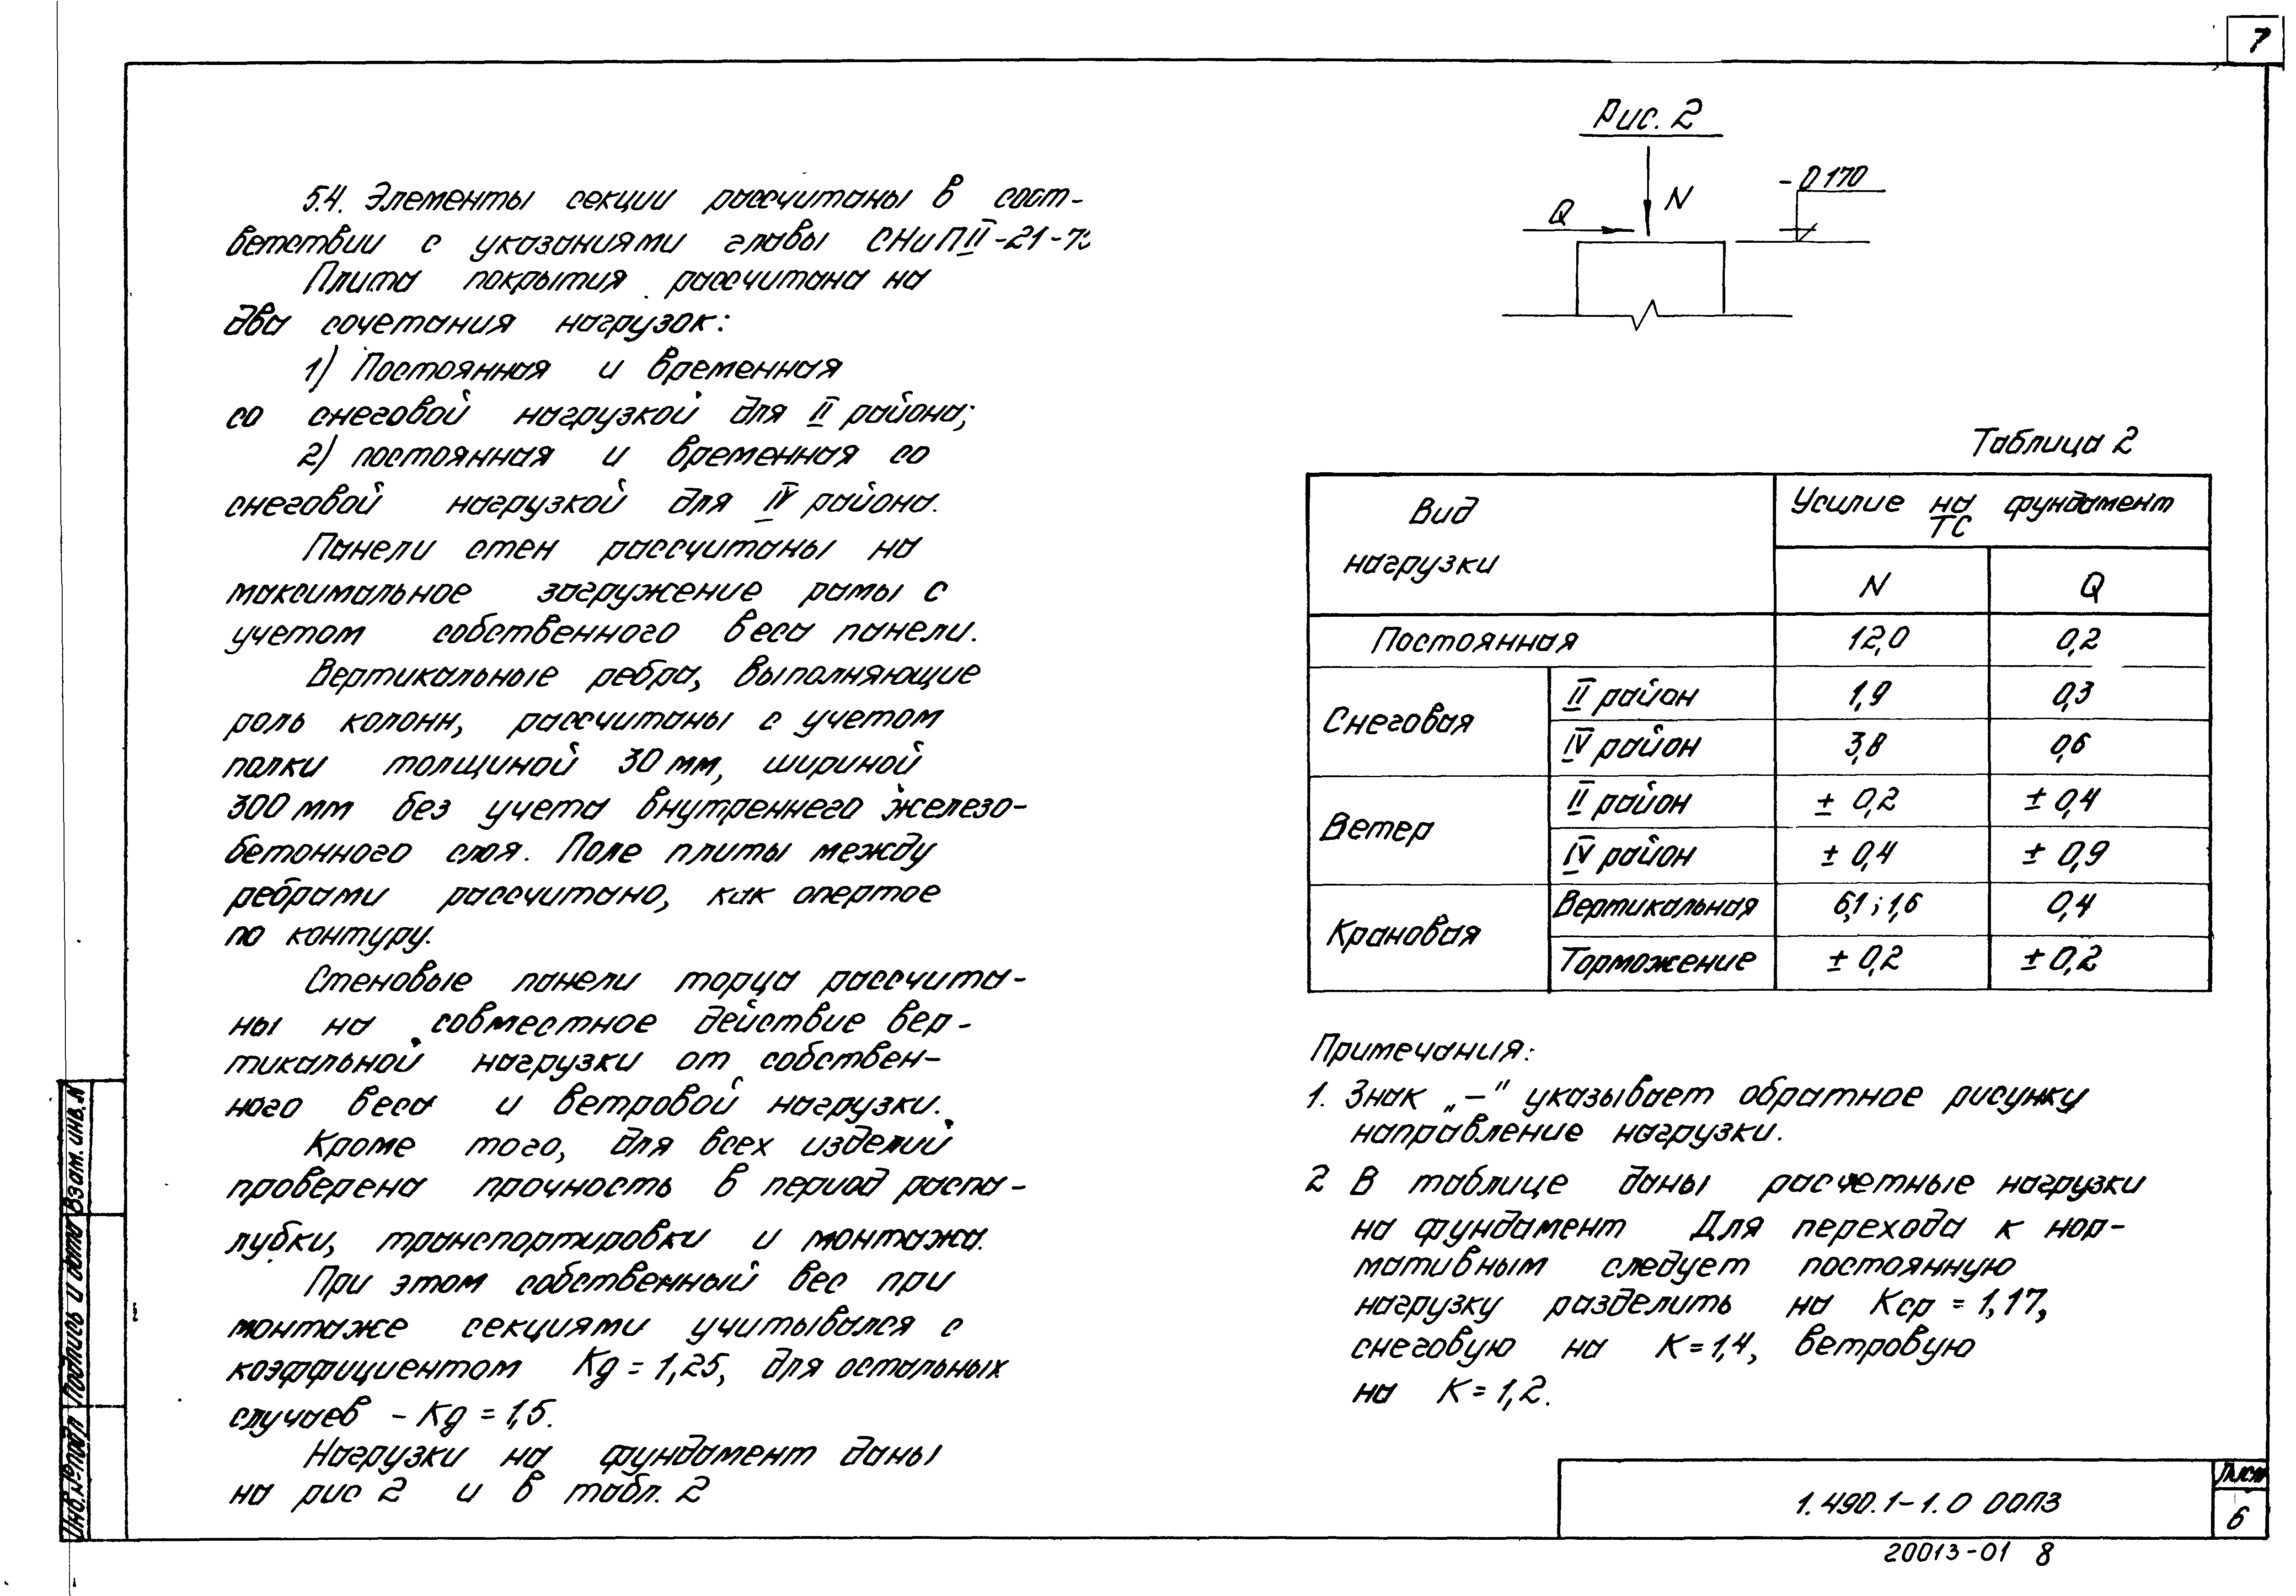 7
5.4. Элементы секции рассчитаны в соот-
ветствии с указаниями главы СНиП II-21-
Плита покрытия рассчитана на
два сочетания нагрузок:
1) Постоянная и временная
со снеговой нагрузкой для II района;
2) постоянная и временная со
снеговой нагрузкой для IV района.
Панели стен рассчитаны на
максимальное загружение рамы с
учетом собственного веса панели.
Вертикальные ребра, выполняющие
роль колонн, рассчитаны с учетом
полки толщиной 30 мм, шириной
300 мм без учета внутреннего железо-
бетонного слоя. Поле плиты между
ребрами рассчитано, как опертое
по контуру.
Стеновые панели торца рассчита-
ны на совместное действие вер-
тикальной нагрузки от собствен-
ного веса и ветровой нагрузки.
Кроме того, для всех изделий
проверена прочность в период распа-
лубки, транспортировки и монтажа.
При этом собственный вес при
монтаже секциями учитывался с
коэффициентом Kд = 1,25, для остальных
случаев - Kд = 1,5.
Нагрузки на фундамент даны
на рис 2 и в табл. 2
Рис. 2
N
Q
-0170
Таблица 2
Вид нагрузки
Усилие на фундамент
ТС
N Q
Постоянная 12,0 0,2
Снеговая II район 1,9 0,3
IV район 3,8 0,6
Ветер II район ± 0,2 ± 0,4
IV район ± 0,4 ± 0,9
Крановая Вертикальная 6,1; 1,6 0,4
Торможение ± 0,2 ± 0,2
Примечания:
1. Знак „-" указывает обратное рисунку
направление нагрузки.
2 В таблице даны расчетные нагрузки
на фундамент Для перехода к нор-
мативным следует постоянную
нагрузку разделить на Kср = 1,17,
снеговую на K = 1,4, ветровую
на K = 1,2.
Инв.№подл Подпись и дата Взам. инв. №
1.490.1-1.0 00ПЗ
Лист
6
20013-01 8